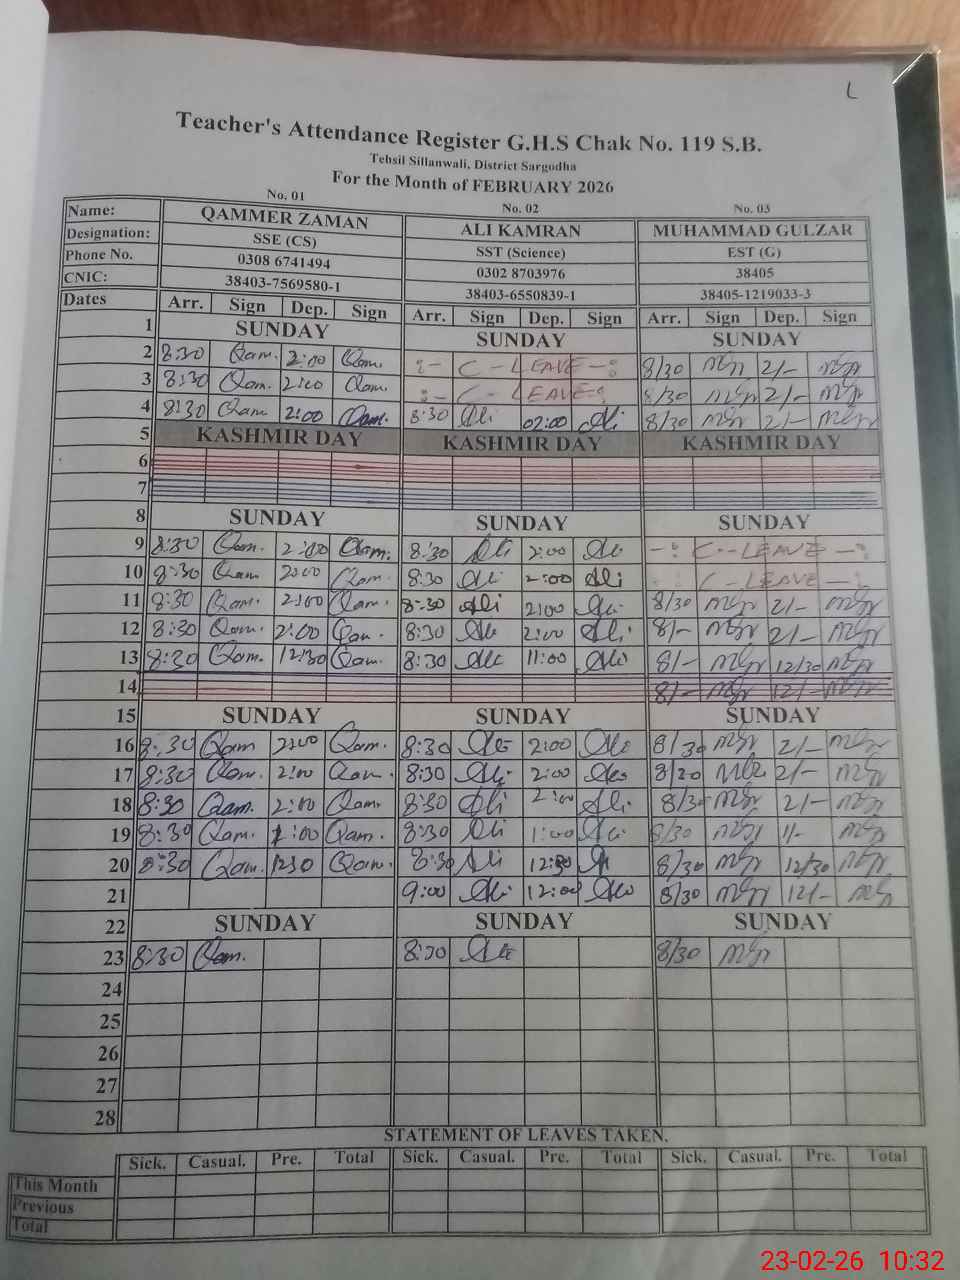 L
Teacher's Attendance Register G.H.S Chak No. 119 S.B.
Tehsil Sillanwali, District Sargodha
For the Month of FEBRUARY 2026
No. 01 No. 02 No. 03
Name: QAMMER ZAMAN ALI KAMRAN MUHAMMAD GULZAR
Designation: SSE (CS) SST (Science) EST (G)
Phone No. 0308 6741494 0302 8703976 38405
CNIC: 38403-7569580-1 38403-6550839-1 38405-1219033-3
Dates Arr. Sign Dep. Sign Arr. Sign Dep. Sign Arr. Sign Dep. Sign
1 SUNDAY SUNDAY SUNDAY
2 8:30 Qam. 2:00 Qam. :- C - LEAVE -: 8/30 2/-
3 8:30 Qam. 2:00 Qam. :- C - LEAVE -: 8/30 2/-
4 8:30 Qam 2:00 Qam. 8:30 Ali 02:00 Ali 8/30 2/-
5 KASHMIR DAY KASHMIR DAY KASHMIR DAY
6
7
8 SUNDAY SUNDAY SUNDAY
9 8:30 Qam. 2:00 Qam. 8:30 Ali 2:00 Ali -: C - LEAVE -:
10 8:30 Qam 2:00 Qam. 8:30 Ali 2:00 Ali C - LEAVE -:
11 8:30 Qam. 2:00 Qam. 8:30 Ali 2:00 Ali 8/30 2/-
12 8:30 Qam. 2:00 Qam. 8:30 Ali 2:00 Ali 8/- 2/-
13 8:30 Qam. 12:30 Qam. 8:30 Ali 11:00 Ali 8/- 12/30
14 8/- 12/-
15 SUNDAY SUNDAY SUNDAY
16 8:30 Qam 2:00 Qam. 8:30 Ali 2:00 Ali 8/30 2/-
17 8:30 Qam. 2:00 Qam. 8:30 Ali 2:00 Ali 8/30 2/-
18 8:30 Qam. 2:00 Qam. 8:30 Ali 2:00 Ali 8/30 2/-
19 8:30 Qam. 1:00 Qam. 8:30 Ali 1:00 Ali 8/30 1/-
20 8:30 Qam. 1230 Qam. 8:30 Ali 12:30 8/30 12/30
21 9:00 Ali 12:00 Ali 8/30 12/-
22 SUNDAY SUNDAY SUNDAY
23 8:30 Qam. 8:30 Ali 8/30
24
25
26
27
28
STATEMENT OF LEAVES TAKEN.
Sick. Casual. Pre. Total Sick. Casual. Pre. Total Sick. Casual. Pre. Total
This Month
Previous
Total
23-02-26 10:32